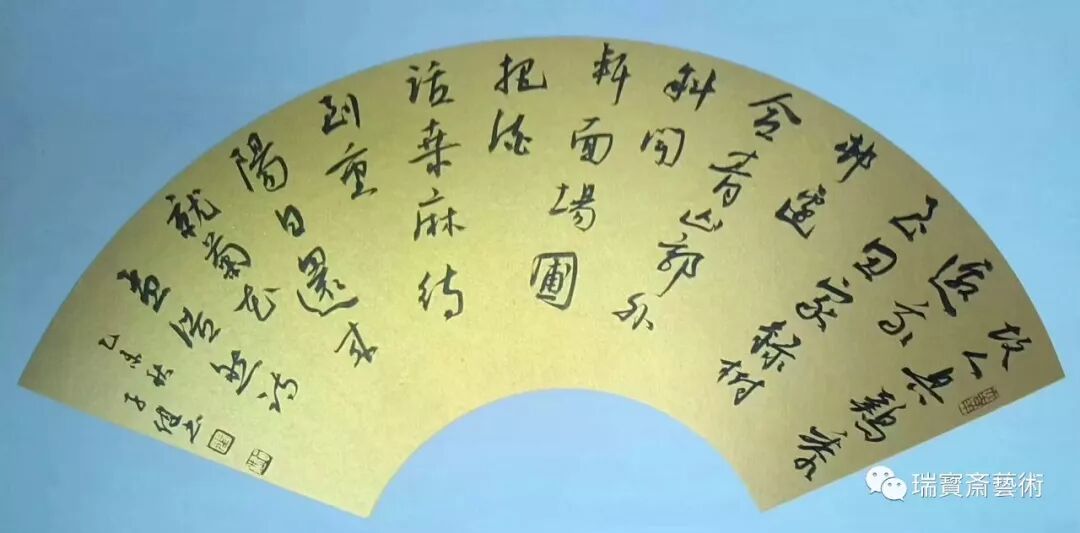 故人具鷄黍
邀我
至田家綠樹
村邊
合青山郭外
斜開
軒面場圃
把酒
話桑麻待
到重
陽日還来
就菊花
孟浩然詩
乙未秋
瑞寶斎藝術